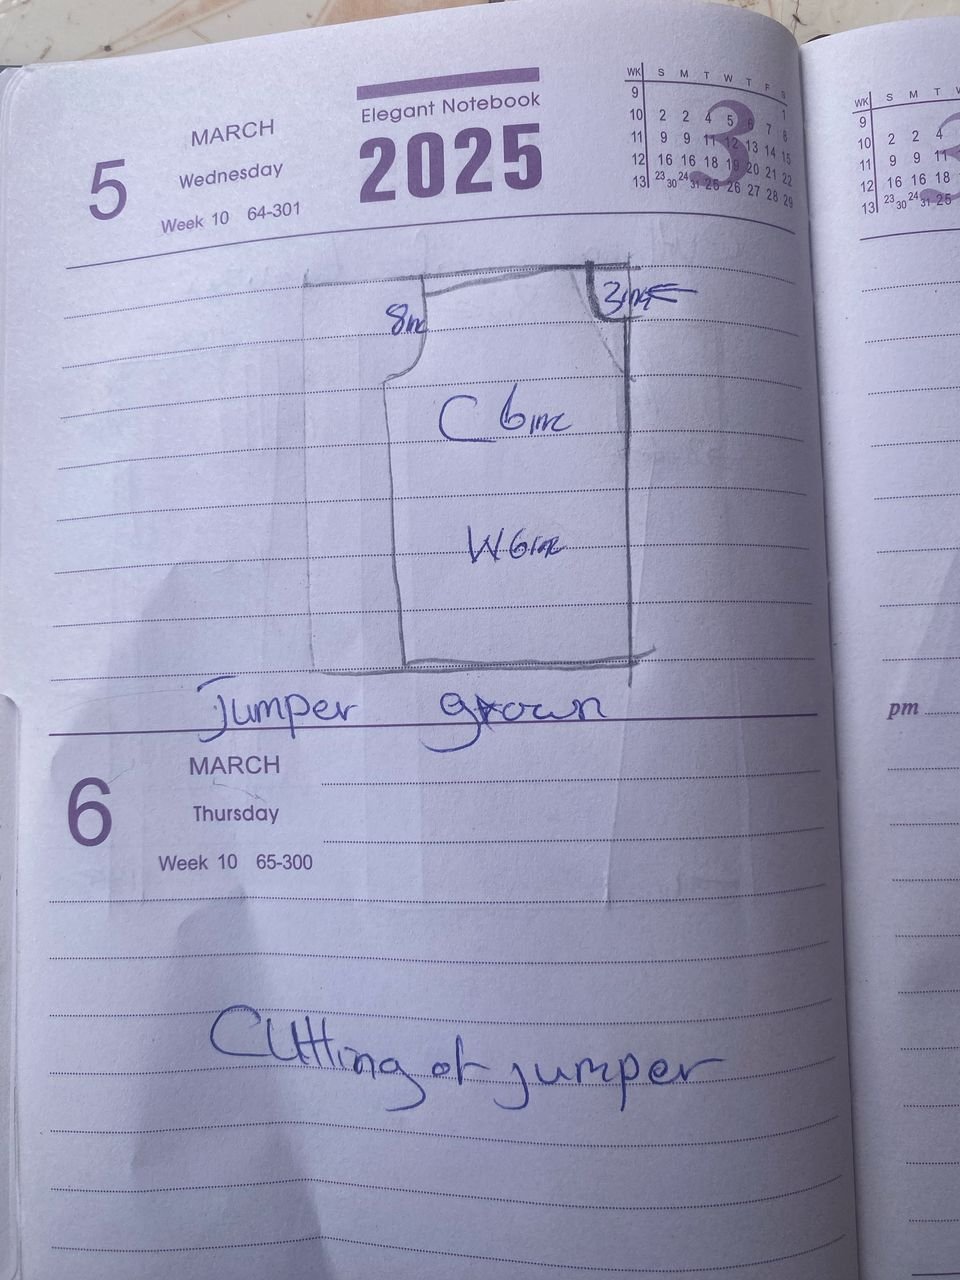 Elegant Notebook
2025
5
MARCH
Wednesday
Week 10 64-301
3
WK S M T W T F S
9 1
10 2 2 4 5 6 7 8
11 9 9 11 12 13 14 15
12 16 16 18 19 20 21 22
13 23 30 24 31 25 26 27 28 29
WK S M T
9
10 2 2 4
11 9 9 11
12 16 16 18
13 23 30 24 31 25
8in
3inc
C 6inc
W 6inc
Jumper grown
pm
6
MARCH
Thursday
Week 10 65-300
Cutting of jumper